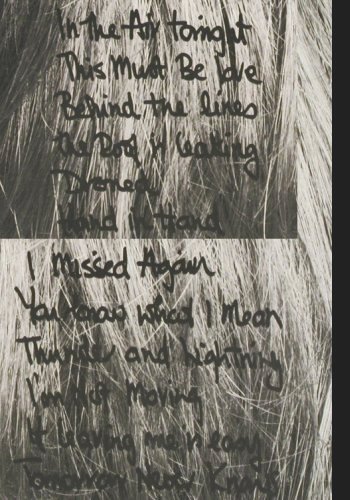 In the Air tonight
This Must Be love
Behind the lines
the Roof is leaking
Droned
Hand in Hand
I Missed Again
You know What I Mean
Thunder and Lightning
I'm Not Moving
If leaving me is easy
Tomorrow Never Knows